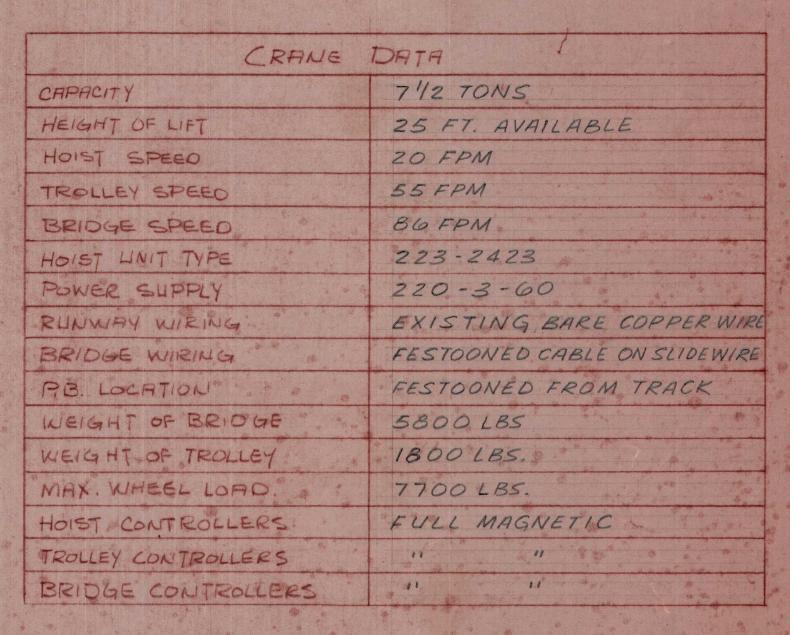 CRANE DATA
CAPACITY 7 1/2 TONS
HEIGHT OF LIFT 25 FT. AVAILABLE
HOIST SPEED 20 FPM
TROLLEY SPEED 55 FPM
BRIDGE SPEED 86 FPM
HOIST UNIT TYPE 223-2423
POWER SUPPLY 220-3-60
RUNWAY WIRING EXISTING BARE COPPER WIRE
BRIDGE WIRING FESTOONED CABLE ON SLIDEWIRE
P.B. LOCATION FESTOONED FROM TRACK
WEIGHT OF BRIDGE 5800 LBS
WEIGHT OF TROLLEY 1800 LBS.
MAX. WHEEL LOAD. 7700 LBS.
HOIST CONTROLLERS FULL MAGNETIC
TROLLEY CONTROLLERS " "
BRIDGE CONTROLLERS " "